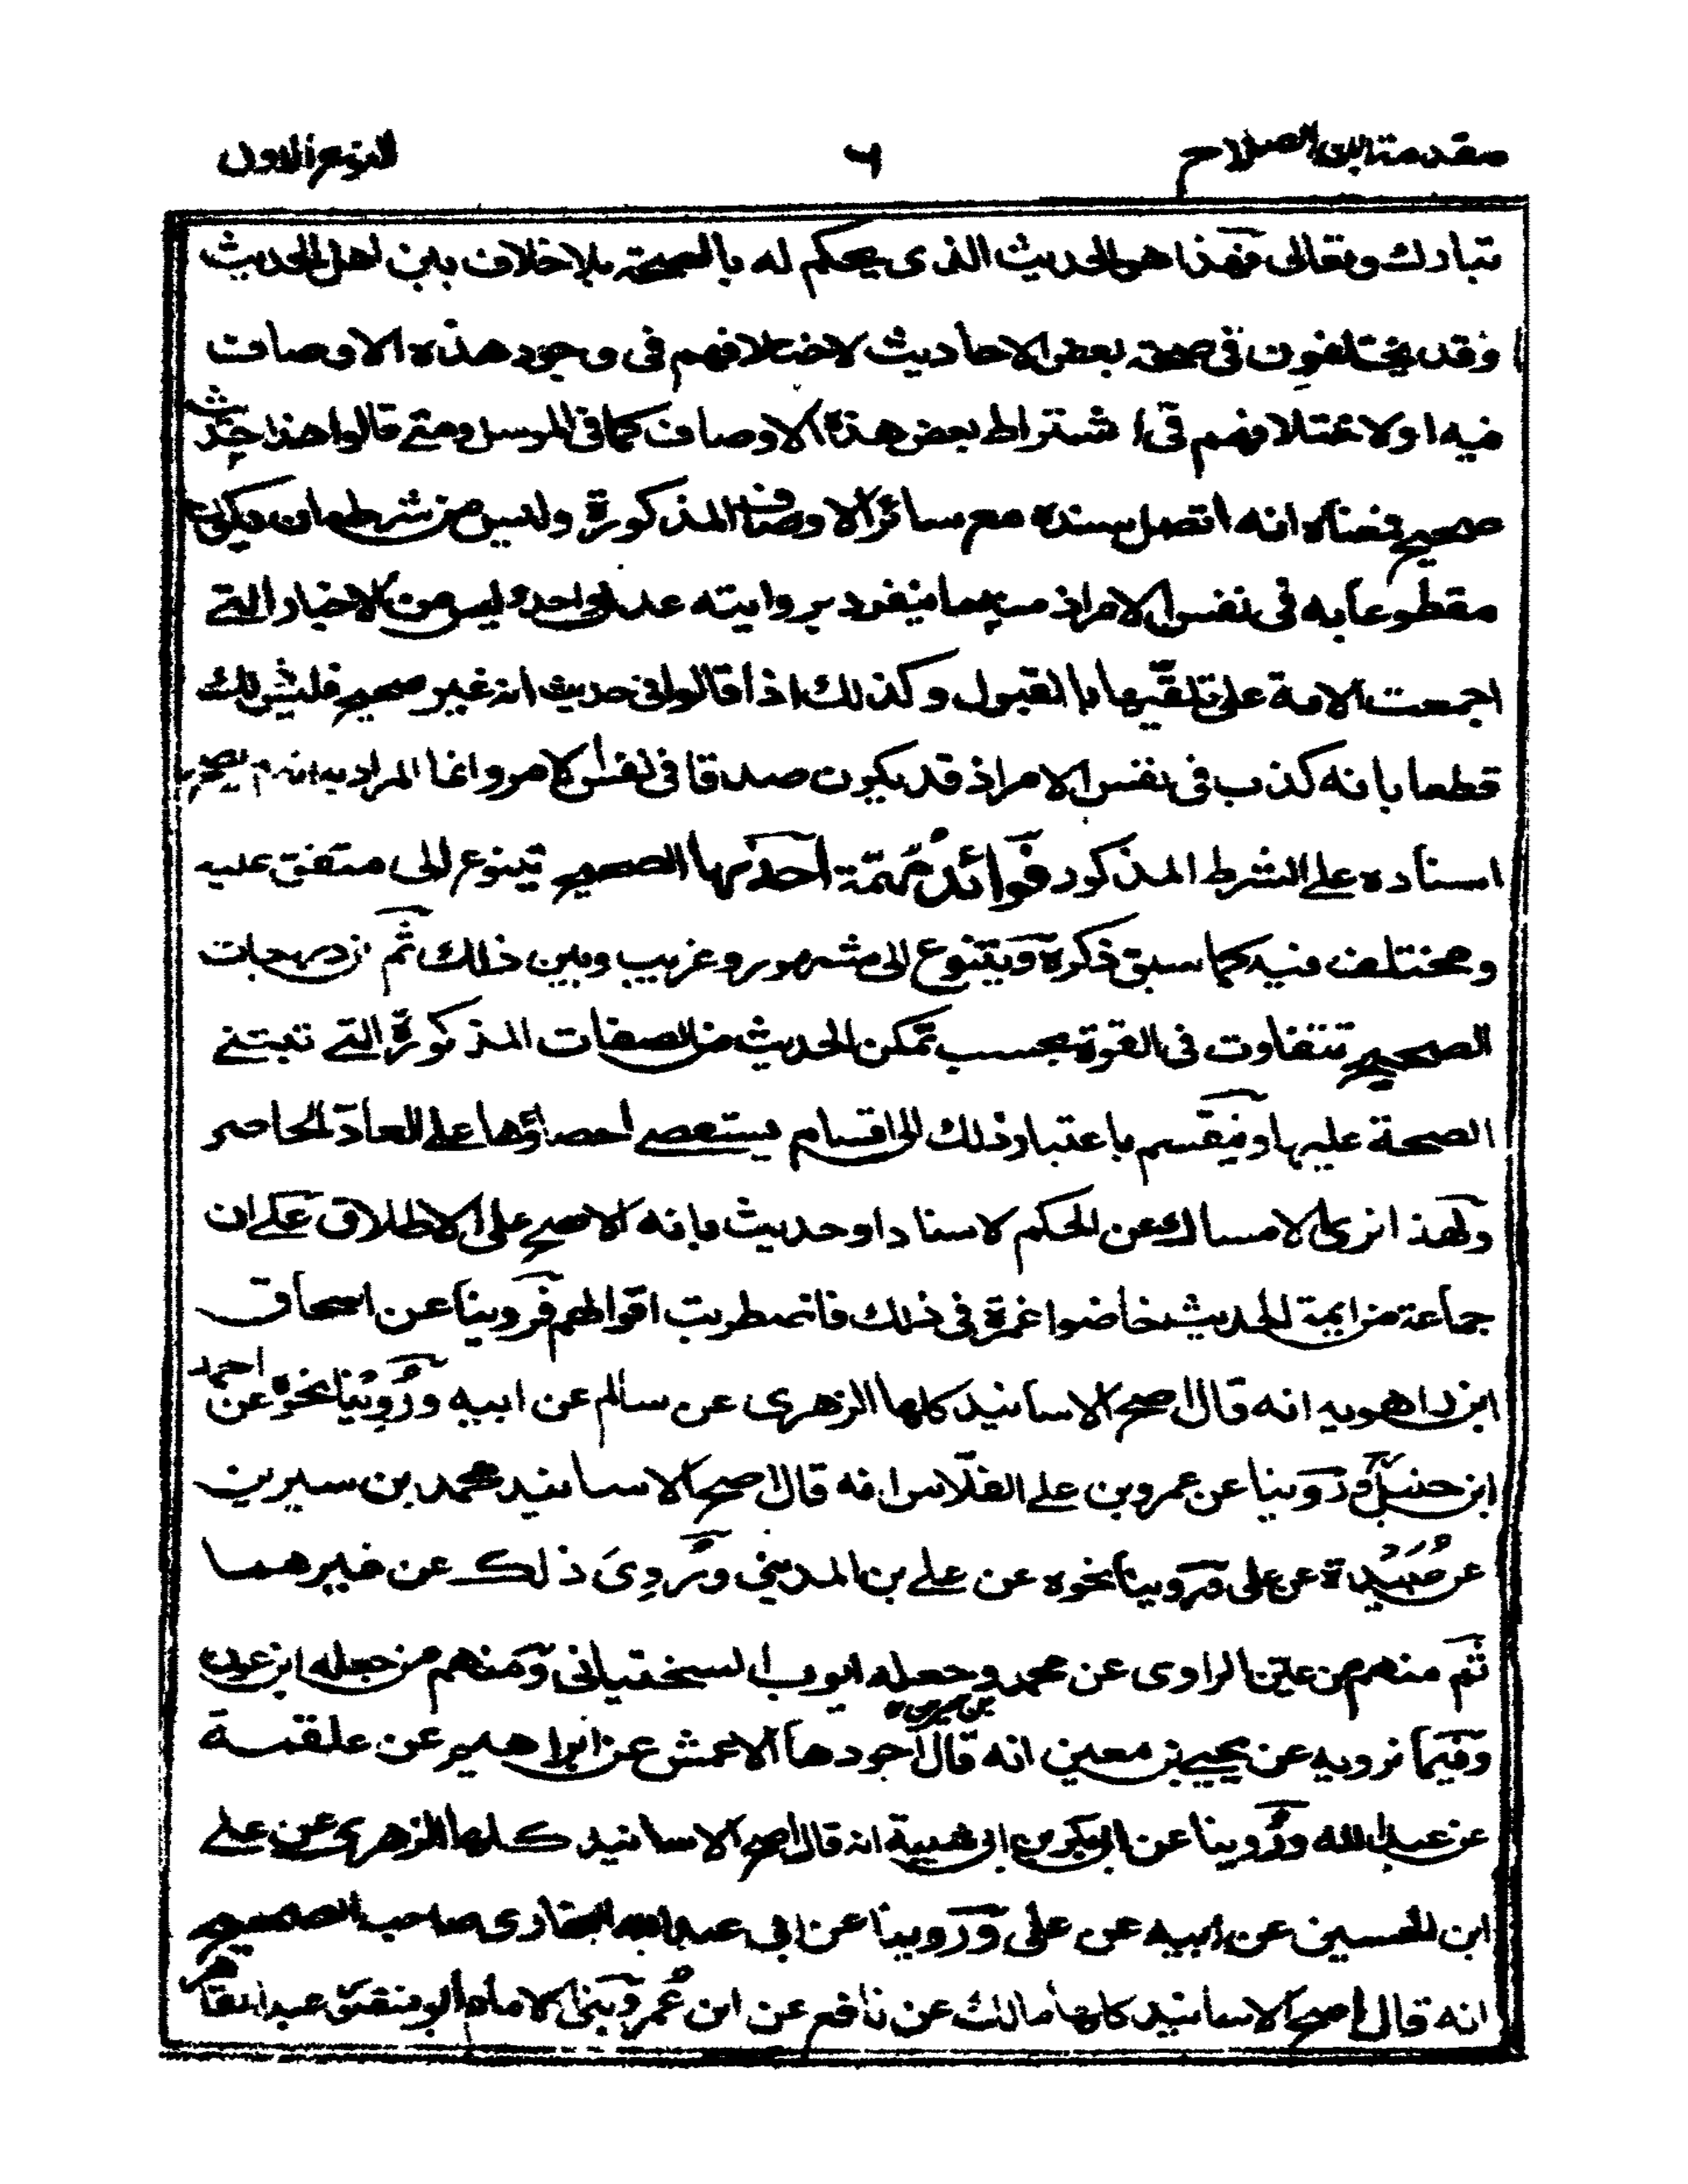 مقدمة ابن الصلاح ٦ النوع الاول
تبارك وتعالى فهذا هو الحديث الذى يحكم له بالصحة بلا خلاف بين اهل الحديث
وقد يختلفون فى صحة بعض الاحاديث لاختلافهم فى وجود هذه الاوصاف
فيه او لاختلافهم فى اشتراط بعض هذه الاوصاف كما فى المرسل ومتى قالوا هذا حديث
صحيح فمعناه انه اتصل سنده مع سائر الاوصاف المذكورة وليس من شرطه ان يكون
مقطوعا به فى نفس الامر اذ منه ما ينفرد بروايته عدل واحد وليس من الاخبار التى
اجمعت الامة على تلقيها بالقبول وكذلك اذا قالوا فى حديث انه غير صحيح فليس ذلك
قطعا بانه كذب فى نفس الامر اذ قد يكون صدقا فى نفس الامر وانما المراد به انه لم يصح
اسناده على الشرط المذكور فَوائدُ مُهِمّة احدٰها الصحيح يتنوع الى متفق عليه
ومختلف فيه كما سبق ذكره ويتنوع الى مشهور وغريب وبين ذلك ثم ان درجات
الصحيح تتفاوت فى القوة بحسب تمكن الحديث من الصفات المذكورة التى تبتنى
الصحة عليها وينقسم باعتبار ذلك الى اقسام يستعصى احصاؤها على العاد الحاصر
ولهذا نرى الامساك عن الحكم لاسناد او حديث بانه الاصح على الاطلاق على ان
جماعة من ايمة الحديث خاضوا غمرة فى ذلك فاضطربت اقوالهم فروينا عن اسحاق
ابن راهويه انه قال اصح الاسانيد كلها الزهرى عن سالم عن ابيه ورُوِينا نحوه عن احمد
ابن حنبل وروينا عن عمرو بن على الفلّاس انه قال اصح الاسانيد محمد بن سيرين
عن عُبَيدة عن على وروينا نحوه عن على بن المدينى ورُوِىَ ذلك عن غيرهما
ثم منهم من عين الراوى عن محمد وجعله ايوب السختيانى ومنهم من جعله ابن عون
بن سيرين
وفيما نرويه عن يحيى بن معين انه قال اجودها الاعمش عن ابراهيم عن علقمة
عن عبد الله ورُوينا عن ابى بكر بن ابى شيبة انه قال اصح الاسانيد كلها الزهرى عن على
ابن الحسين عن ابيه عن على وروينا عن ابى عبد الله البخارى صاحب الصحيح
انه قال اصح الاسانيد كلها مالك عن نافع عن ابن عُمر وبنى الامام ابو منصور عبد القاهر